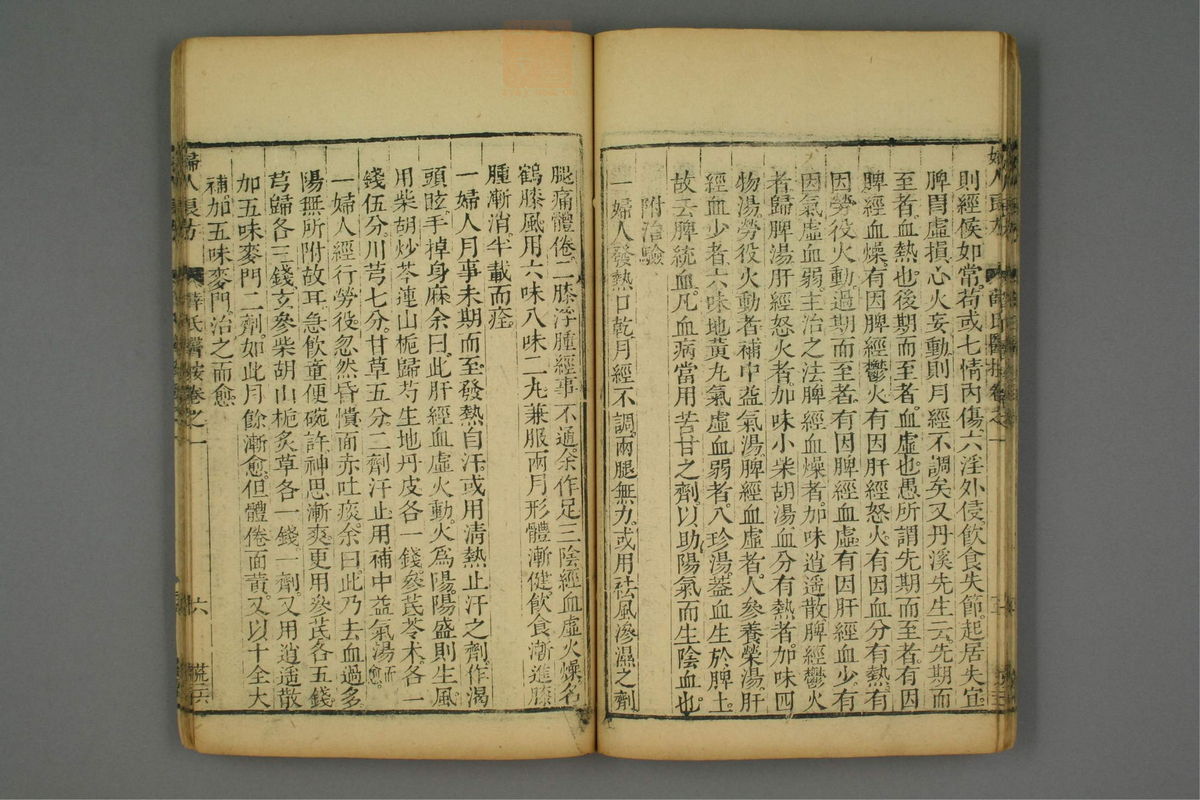 則經候如常。苟或七情內傷。六淫外侵。飲食失節。起居失宜。
脾胃虛損。心火妄動。則月經不調矣。又丹溪先生云。先期而
至者。血熱也。後期而至者。血虛也。愚所謂先期而至者。有因
脾經血燥。有因脾經鬱火。有因肝經怒火。有因血分有熱。有
因勞役火動。過期而至者。有因脾經血虛。有因肝經血少。有
因氣虛血弱。主治之法。脾經血燥者。加味逍遙散。脾經鬱火
者。歸脾湯。肝經怒火者。加味小柴胡湯。血分有熱者。加味四
物湯。勞役火動者。補中益氣湯。脾經血虛者。人參養榮湯。肝
經血少者。六味地黃丸。氣虛血弱者。八珍湯。蓋血生於脾土。
故云脾統血。凡血病當用苦甘之劑。以助陽氣而生陰血也。
附治驗
一婦人發熱口乾。月經不調。兩腿無力。或用祛風滲濕之劑
腿痛體倦。二膝浮腫。經事不通。余作足三陰經血虛火燥。名
鶴膝風。用六味八味二丸。兼服兩月。形體漸健。飲食漸進。膝
腫漸消。半載而痊。
一婦人月事未期而至。發熱自汗。或用清熱止汗之劑。作渴
頭眩。手掉身麻。余曰。此肝經血虛火動。火為陽。陽盛則生風。
用柴胡炒芩連山梔歸芍生地丹皮各一錢。參芪苓朮。各一
錢伍分。川芎七分。甘草五分。二劑汗止。用補中益氣湯而愈。
一婦人經行勞役。忽然昏憒。面赤吐痰。余曰。此乃去血過多
陽無所附故耳。急飲童便碗許。神思漸爽。更用參芪各五錢
芎歸各三錢。玄參柴胡山梔炙草各一錢。一劑。又用逍遙散
加五味麥門。二劑。如此月餘漸愈。但體倦面黃。又以十全大
補。加五味麥門。治之而愈。
婦人良方
薛氏醫按卷之一
六